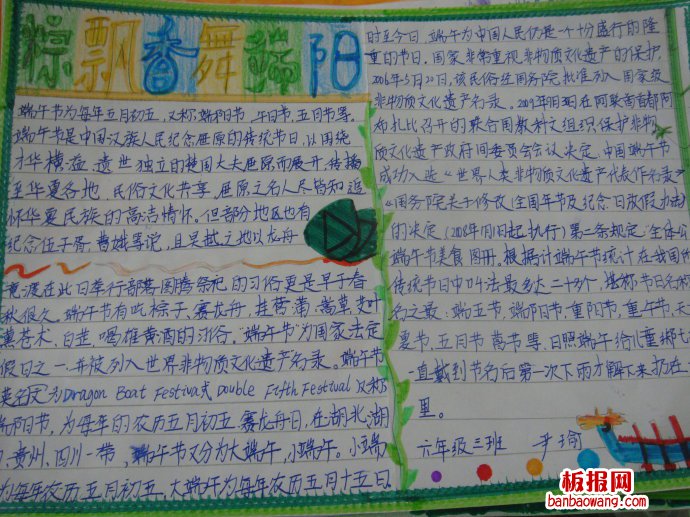 粽飘香舞端阳
端午节为每年五月初五,又称端阳节、午日节、五月节等。
端午节是中国汉族人民纪念屈原的传统节日,以围绕
才华横溢、遗世独立的楚国大夫屈原而展开,传播
至华夏各地,民俗文化共享,屈原之名人尽皆知,追
怀华夏民族的高洁情怀。但部分地区也有
纪念伍子胥、曹娥等说,且吴越之地以龙舟
竞渡在此日举行部落图腾祭祀的习俗更是早于春
秋很久。端午节有吃粽子,赛龙舟,挂菖蒲、蒿草、艾叶
薰苍术、白芷,喝雄黄酒的习俗。"端午节"为国家法定
假日之一,并被列入世界非物质文化遗产名录。端午节
英名又为Dragon Boat Festival或Double Fifth Festival又称
端阳节,为每年的农历五月初五 赛龙舟日,在湖北、湖
、贵州、四川一带,端午节又分为大端午、小端午。小端
为每年农历五月初五,大端午为每年农历五月十五日
时至今日,端午为中国人民仍是一个十分盛行的隆
重的节日。国家非常重视非物质文化遗产的保护,
2006年5月20日,该民俗经国务院批准列入国家级
非物质文化遗产名录。2009年
布扎比召开的联合国教科文组织保护非物
质文化遗产政府间委员会会议决定,中国端午节
成功入选《世界人类非物质文化遗产代表作名录》
《国务院关于修改〈全国年节及纪念日放假办法〉
的决定》(2008年1月1日起执行)第二条规定:"全体公
端午节美食图册。根据计端午节统计在我国传
传统节日中叫法最多达二十多个,堪称节日名称
名之最:端五节、端阳节、重阳节、重午节、天
节、五月节、菖节等,日照端午给儿童绑七
一直戴到节名后第一次下雨才解下来扔在
里。
六年级三班 尹瑜
板报网
banbaowang.com